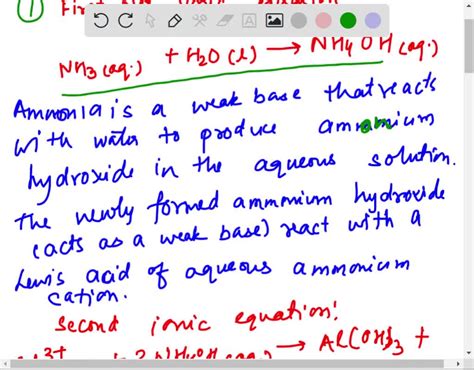 ① First
NH3 (aq.) + H2O (l) → NH4OH (aq.)
Ammonia is a weak base that reacts
with water to produce ammonium
hydroxide in the aqueous solution.
The newly formed ammonium hydroxide
(acts as a weak base) react with a
Lewis acid of aqueous ammonium
cation.
Second ionic equation!
3+ → Al(OH)3 +